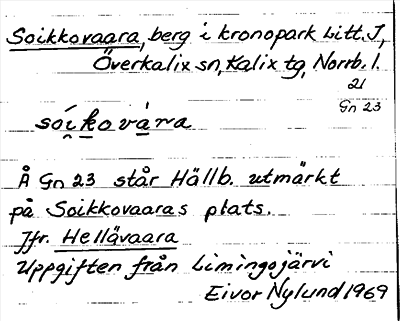 Soikkovaara, berg i kronopark Litt. J,
Överkalix sn, Kalix tg, Norrb. l.
21
Gn 23
sói̭ḵova̱ra
Å Gn 23 står Hällb. utmärkt
på Soikkovaaras plats.
Jfr. Hellävaara
Uppgiften från Limingojärvi
Eivor Nylund 1969